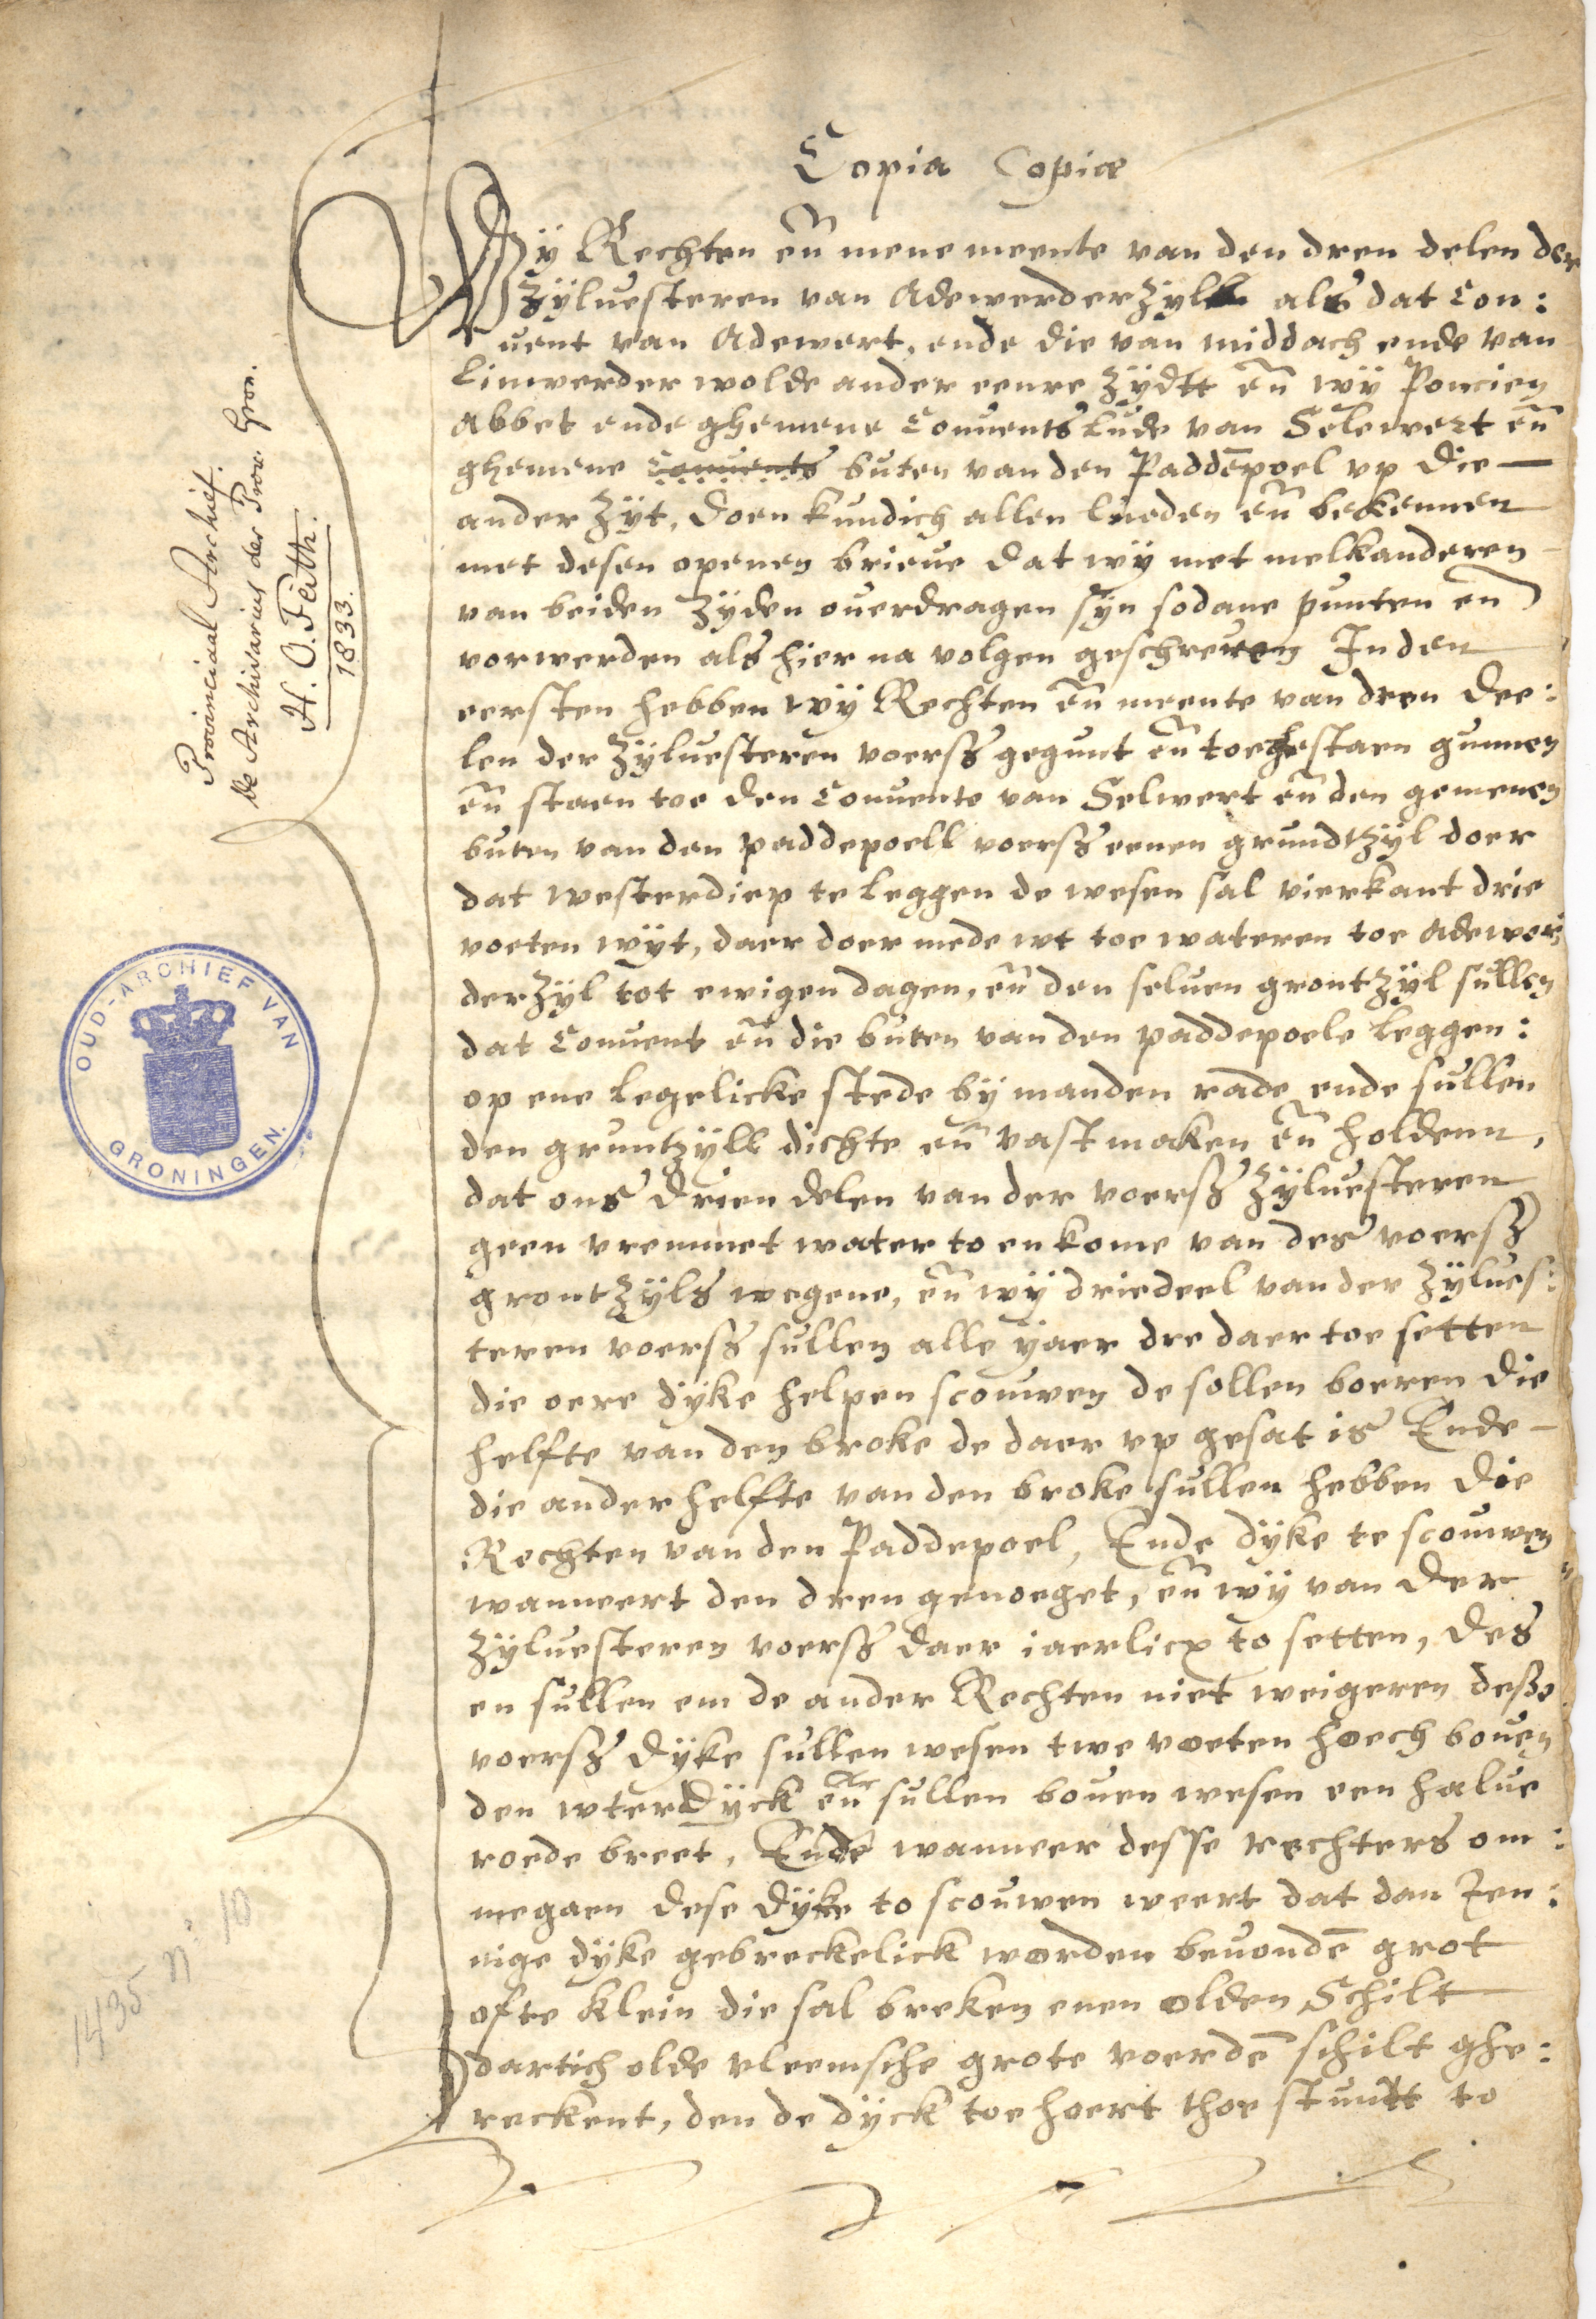 Copia Copiæ
Wÿ Rechten eñ mene meente van den dren delen der
Zÿluesteren van Adewerder Zÿll als dat Con:
uent van Adewert, ende die van middach ende van
Linwerder wolde ander eenre Zÿdtt eñ wÿ Poncien
Abbet ende ghemene Conuents lude van Selewert eñ
ghemene Conuents buten van den Paddēpoel vp die
ander Zÿt, doen kundich allen lueden eñ bekennen
met desen openen brieue dat wÿ met melkanderen
van beiden Zÿden ouerdragen sÿn sodane punten en
vorwerden als hier na volgen geschreuen In den
eersten hebben wÿ Rechten eñ meente van dren dee:
len der Zÿluesteren voerss gegunt eñ toegestaen gunnen
eñ staen toe den Conuente van Selwert eñ den gemenen
buten van den paddepoell voerss eenen grundtzÿl doer
dat westerdiep te leggen de wesen sal vierkant drie
voeten wÿt, daer doer mede wt toe wateren toe Adewer:
der Zÿl tot ewigen dagen, eñ den seluen grontZÿl sullen
dat Conuent eñ die buten van den paddepoele leggen:
op ene legelicke stede bÿ manden rade ende sullen
den gruntzÿll dichte eñ vast maken eñ holdenn,
dat ons drien delen van der voerss Zÿluesteren
geen vremmet water to en kome van des voerss
grontZÿls wegene, eñ wÿ driedeel van der Zÿlues:
teren voerss sullen alle ÿaer dre daer toe setten
die oere dÿke helpen scouwen de sollen boeren die
helfte van den broke de daer vp gesat is Ende
die ander helfte van den broke sullen hebben die
Rechten van den Paddepoel, Ende dÿke te scouwen
wanneert den dren genoeget, eñ wÿ van der
Zÿluesteren voerss daer iaerlicx to setten, des
en sullen em de ander Rechten niet weigeren desse
voerss dÿke sullen wesen twe voeten hoech bouen
den wterdÿck eñ sullen bouen wesen een halue
roede breet, Ende wanneer desse rechters om:
megaen dese dÿke to scouwen weert dat dan Ien:
nige dÿke gebreckelick worden beuondē grot
ofte klein die sal breken enen olden Schilt
dartich olde vleemsche grote voerdē schilt ghe:
reckent, den de dÿck toe hoert thoe stuntt to
Provinciaal Archief.
de Archivarius der Prov. Gron.
H. O. Feith.
1833.
OUD-ARCHIEF VAN
GRONINGEN.
1435 n: 10